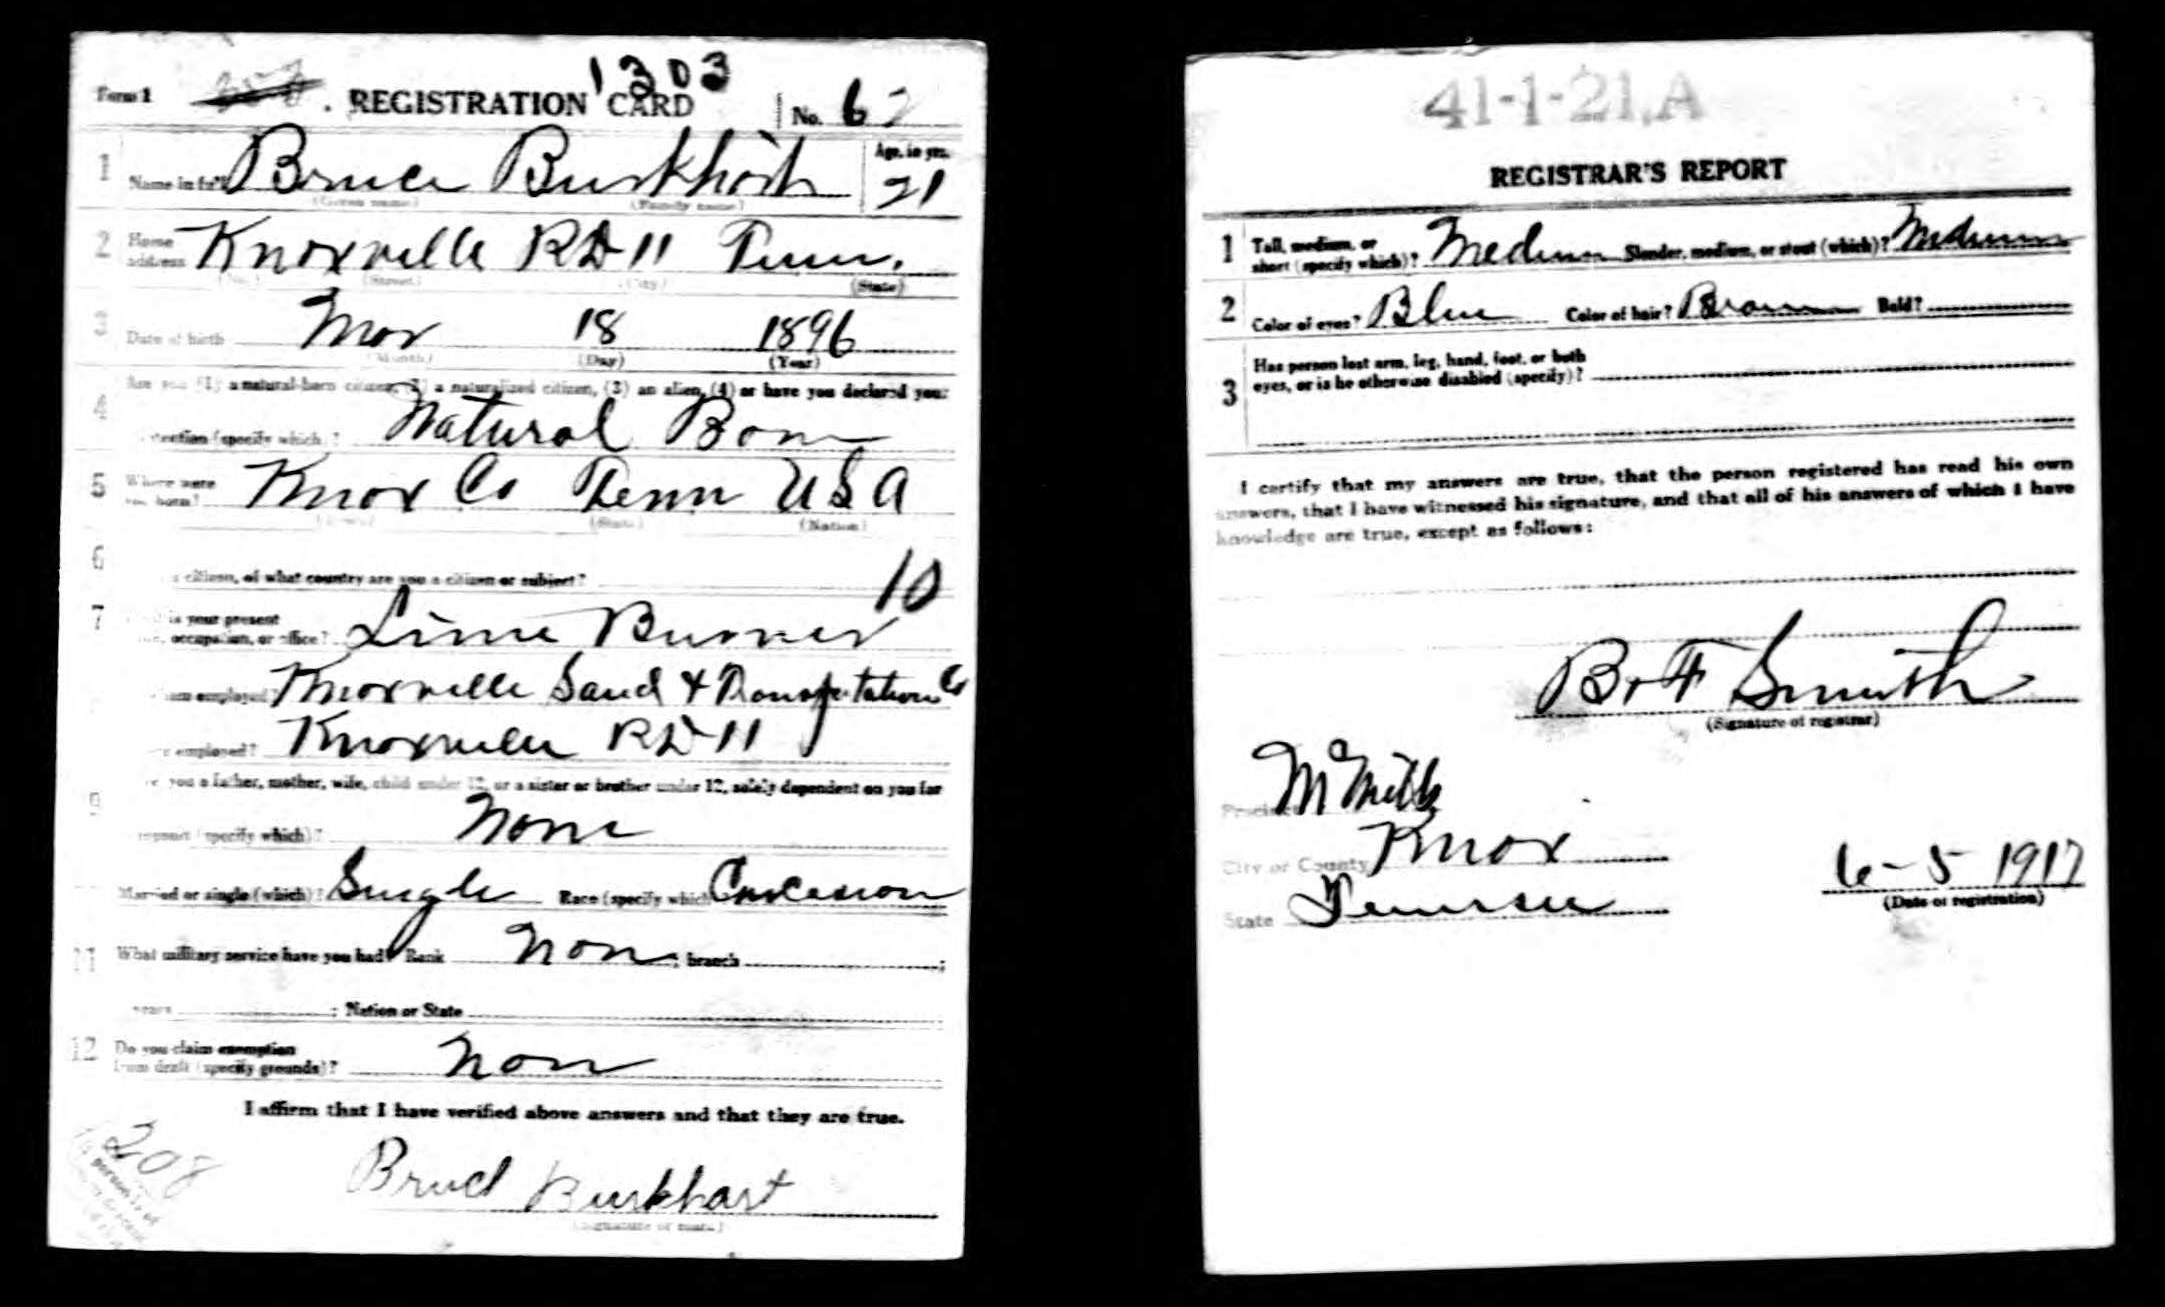 Form 1 REGISTRATION CARD 1303 No. 62
1 Name in full Bruce Burkhart Age, in yrs. 21
(Given name) (Family name)
2 Home address Knoxville RD 11 Tenn.
(No.) (Street) (City) (State)
3 Date of birth Mar 18 1896
(Month) (Day) (Year)
4 Are you (1) a natural-born citizen, (2) a naturalized citizen, (3) an alien, (4) or have you declared your
intention (specify which)? Natural Born
5 Where were you born? Knox Co Tenn USA
(Town) (State) (Nation)
6 citizen, of what country are you a citizen or subject? 10
7 is your present
occupation, or office? Lime Burner
employed? Knoxville Sand & Transportation Co
employed? Knoxville RD 11
9 you a father, mother, wife, child under 12, or a sister or brother under 12, solely dependent on you for
support (specify which)? None
Married or single (which)? Single Race (specify which) Caucasion
11 What military service have you had? Rank Non ; branch ;
years ; Nation or State
12 Do you claim exemption
from draft (specify grounds)? Non
I affirm that I have verified above answers and that they are true.
208
person is of
Bruce Burkhart
(Signature or mark)
41-1-21.A
REGISTRAR'S REPORT
1 Tall, medium, or
short (specify which)? Medium Slender, medium, or stout (which)? Medium
2 Color of eyes? Blue Color of hair? Brown Bald?
3 Has person lost arm, leg, hand, foot, or both
eyes, or is he otherwise disabled (specify)?
I certify that my answers are true, that the person registered has read his own
answers, that I have witnessed his signature, and that all of his answers of which I have
knowledge are true, except as follows:
Smith
(Signature of registrar)
Precinct McMills
City or County Knox
State Tennessee
6-5 1917
(Date of registration)